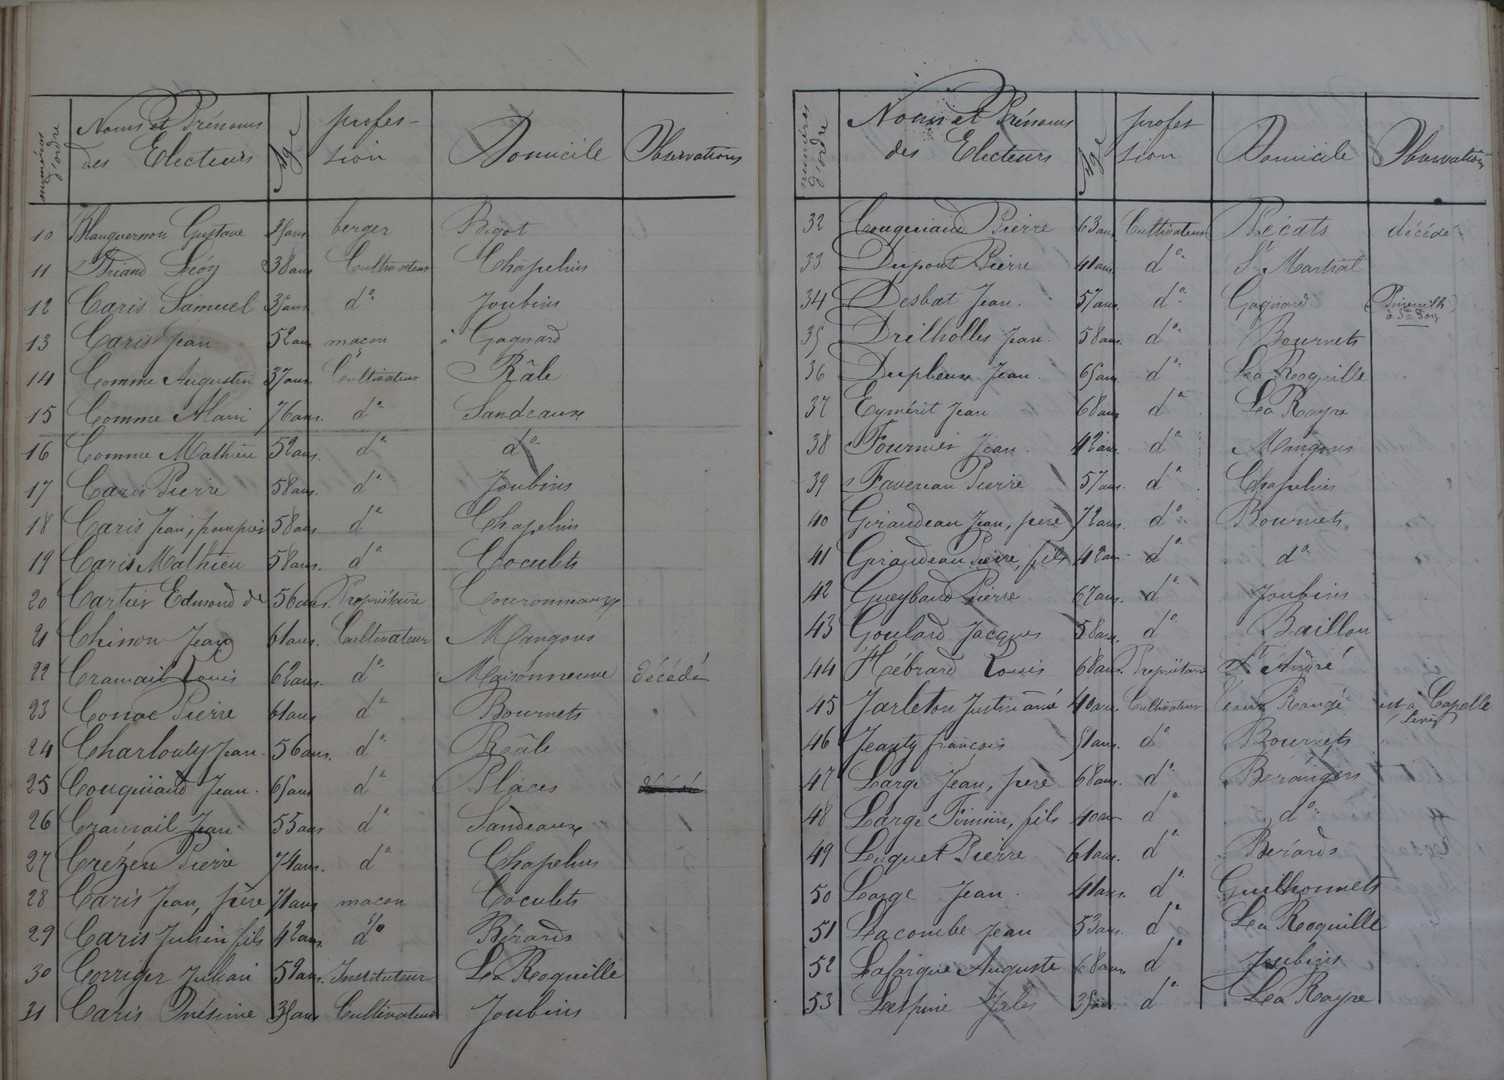 numéros d'ordre Noms et Prénoms des Electeurs Age profession Domicile Observations
10 Gustave berger Bigot
11 Briand Léon 38 ans Cultivateur Chapelins
12 Caris Samuel 35 ans do Joubins
13 Caris Jean 52 ans maçon à Gagnard
14 Comme Augustin 37 ans Cultivateur Râle
15 Comme Alain 76 ans do Sandeaux
16 Comme Mathieu 52 ans do do
17 Caris Pierre 58 ans do Joubins
18 Caris Jean, 58 ans do Chapelins
19 Caris Mathieu 58 ans do Coculets
20 Cartier Edmond de 56 ans Propriétaire Couronneaux
21 Chinon Jean 61 ans Cultivateur Mangons
22 Cramail Louis 62 ans do Maisonneuve décédé
23 Conac Pierre 61 ans do Bournets
24 Charlouty Jean 56 ans do Râle
25 Couquiaud Jean 65 ans do Places décédé
26 Cramail Jean 55 ans do Sandeaux
27 Crézen Pierre 74 ans do Chapelins
28 Caris Jean, père 71 ans maçon Coculets
29 Caris Julien fils 42 ans do Bérards
30 Corriger 52 ans Instituteur La Roquille
31 Caris Onésime 35 ans Cultivateur Joubins
numéros d'ordre Noms et Prénoms des Electeurs Age profession Domicile Observations
32 Couquiaud Pierre 63 ans Cultivateur Récats décédé
33 Dupont Pierre 41 ans do St Martial
34 Desbat Jean 57 ans do Gagnard à Ste Foy
35 Drilholles Jean 58 ans do Bournets
36 Dupleux Jean 65 ans do La Roquille
37 Eymérit Jean 68 ans do La Rayre
38 Fournier Jean 42 ans do Mangons
39 Favereau Pierre 57 ans do Chapelins
40 Girandeau Jean, père 72 ans do Bournets
41 Girandeau Pierre, fils 42 ans do do
42 Gueybaud Pierre 67 ans do Joubins
43 Goulard Jacques 58 ans do Baillon
44 Hébrard Louis 68 ans Propriétaire St André
45 Jarleton Justin aîné 40 ans Cultivateur Rangé est à Capelle
46 Jeanty françois 51 ans do Bournets
47 Large Jean, père 68 ans do Bérangers
48 Large Firmin, fils 40 ans do do
49 Luquet Pierre 61 ans do Bérards
50 Large Jean 41 ans do Guilhonnets
51 Lacombe Jean 53 ans do La Roquille
52 Lafargue Auguste 68 ans do Joubins
53 Jules 35 ans do La Rayre